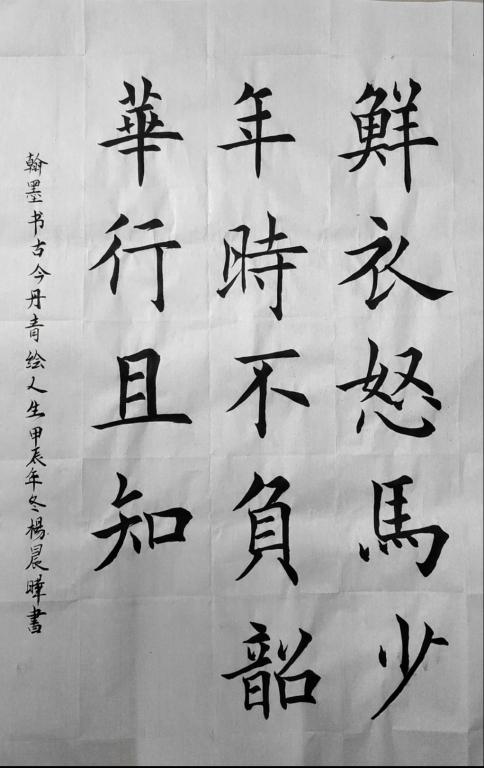 鮮衣怒馬少
年時不負韶
華行且知
翰墨书古今丹青绘人生甲辰年冬楊晨曄書